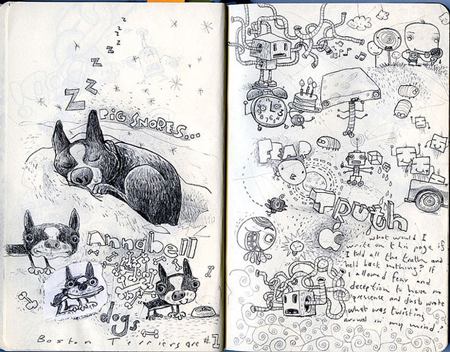 z
z
z
z
Z
Z
Z
BIG SNORES...
Annabell
dogs
Boston Terriers are #1
FEAR
Truth
what would I
write on this page if
I told all the truth, and
held back nothing? If
I allowed fear and
deception to have no
presence and just wrote
what was twisting
around in my mind?